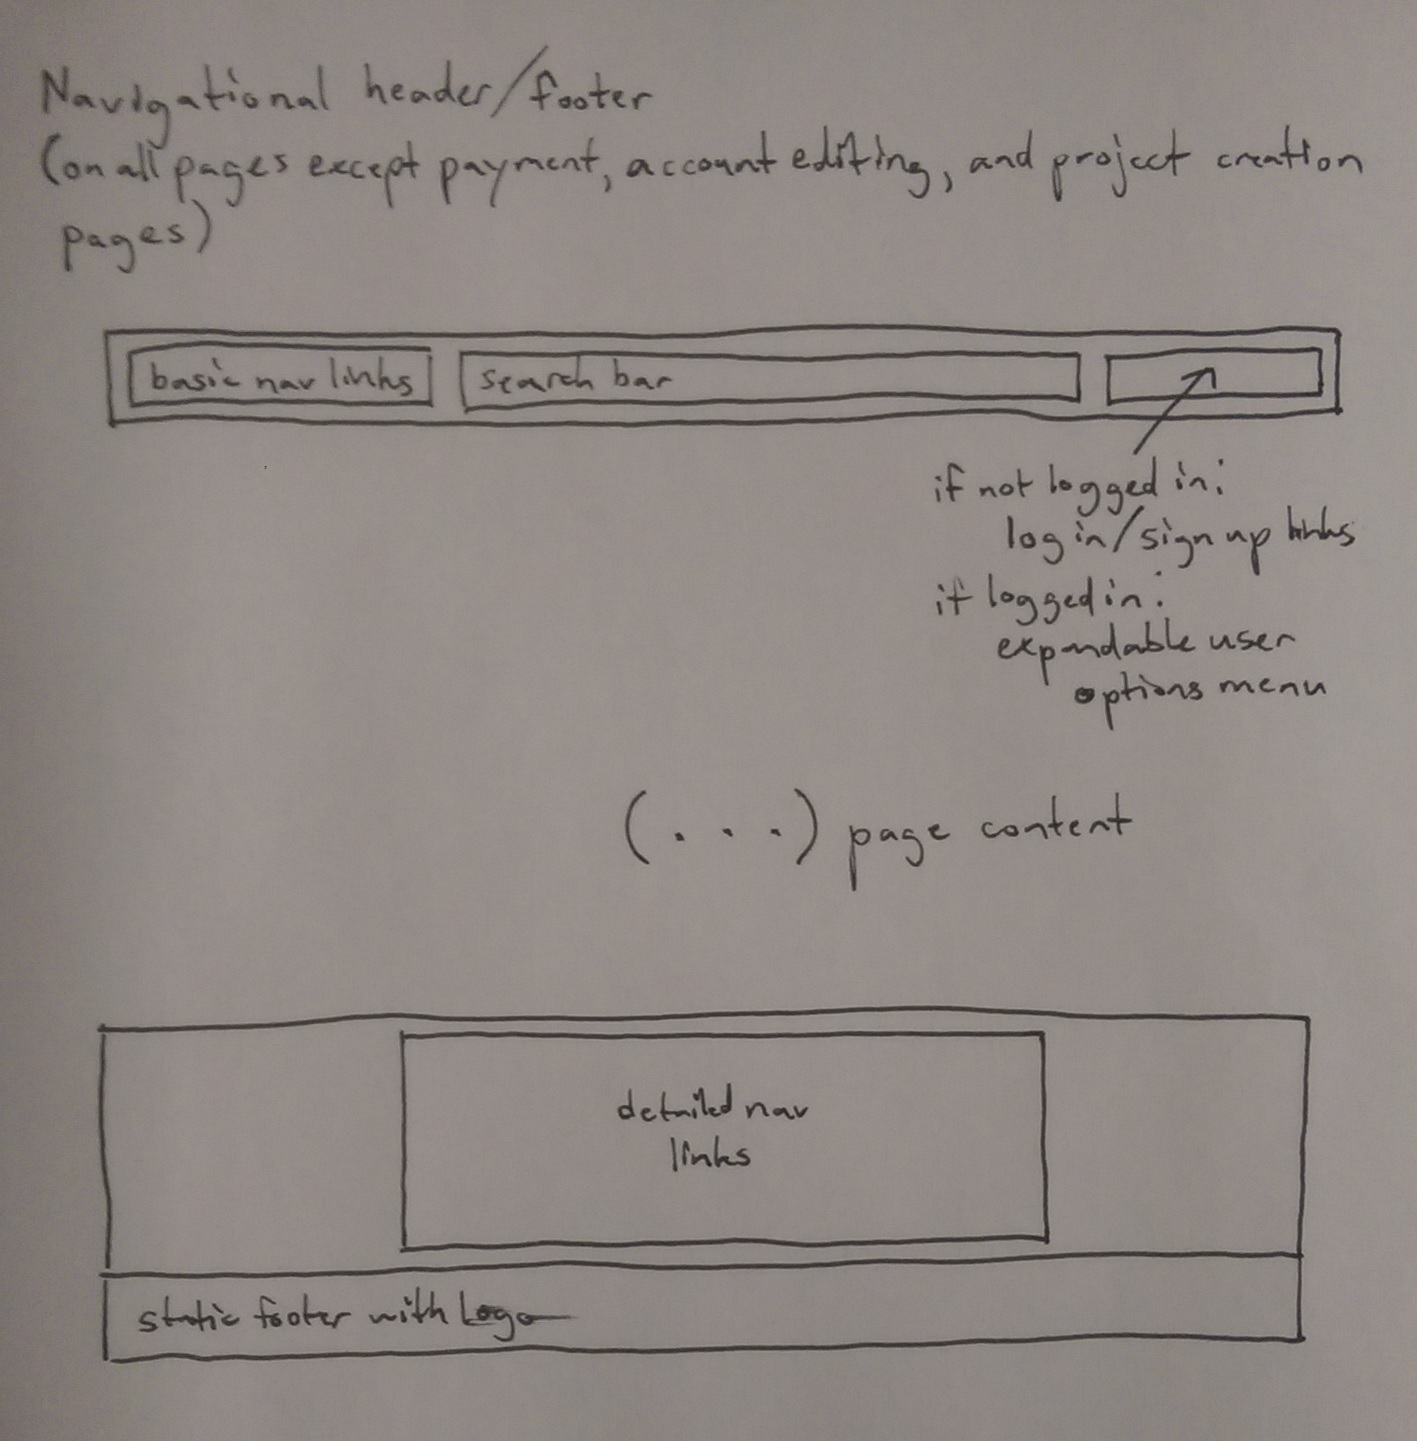 Navigational header/footer
(on all pages except payment, account editing, and project creation
pages)
basic nav links
search bar
if not logged in:
log in/sign up links
if logged in:
expandable user
options menu
(...) page content
detailed nav
links
static footer with Logo